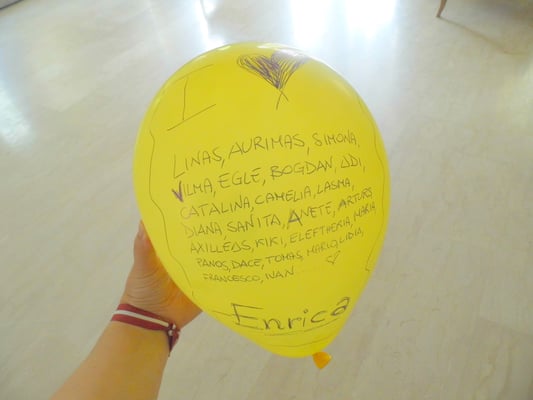 I
LINAS, AURIMAS, SIMONA,
VILMA, EGLE, BOGDAN, ADI,
CATALINA, CAMELIA, LASMA,
DIANA, SANITA, ANETE, ARTURS,
AXILLEAS, KIKI, ELEFTHERIA, MARIA,
PANOS, DACE, TOMAS, MARIO, LIDIA,
FRANCESCO, IVAN.....
Enrica